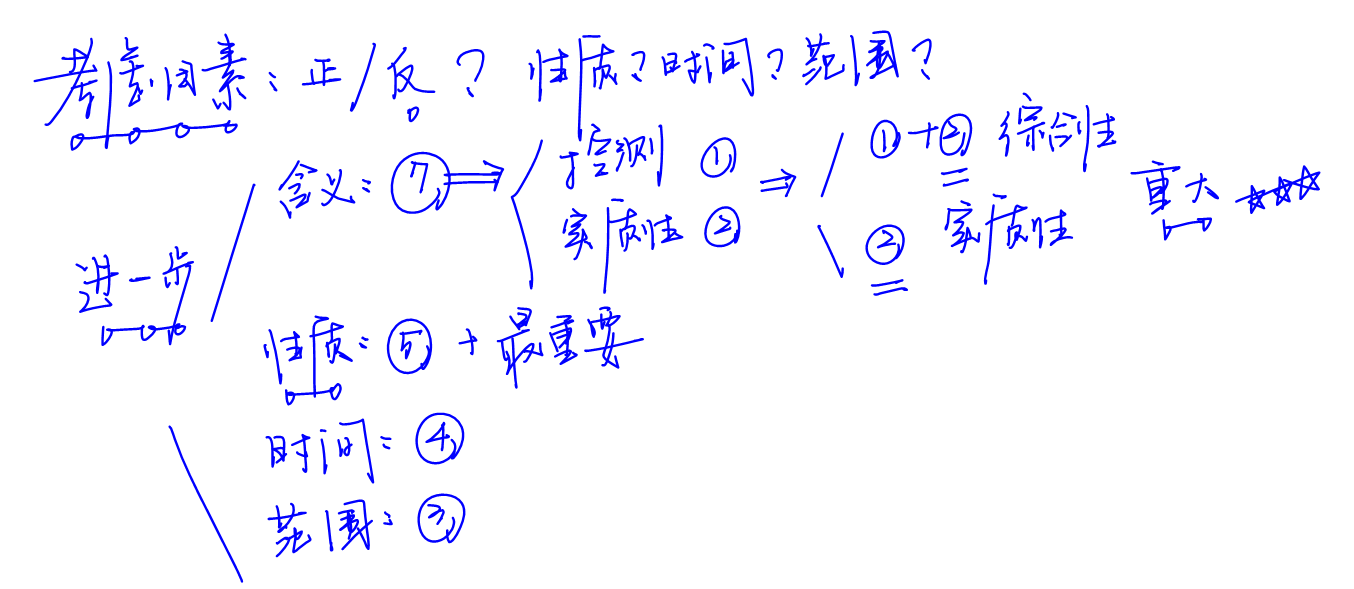 考虑因素：正/反？性质？时间？范围？
含义：⑦ ⇒ 控测 ① ⇒ ①+② 综合性
实质性 ② ② 实质性 重大 ☆☆☆
进一步
性质：⑤ + 最重要
时间：④
范围：③